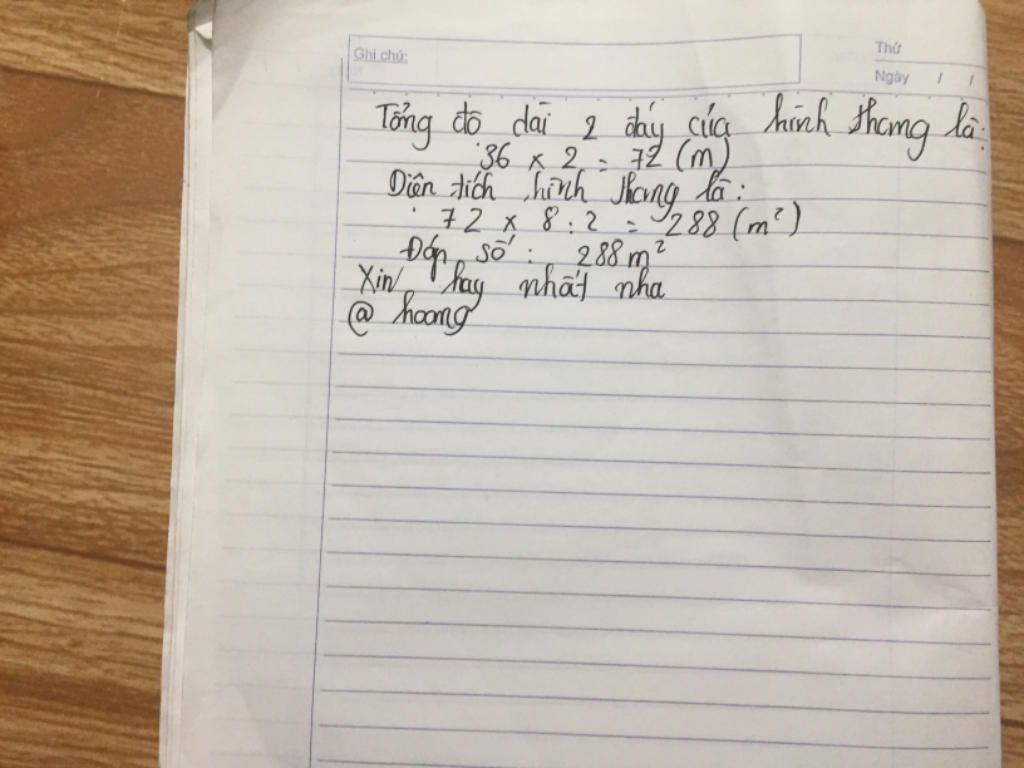 Ghi chú:
Thứ
Ngày / /
Tổng độ dài 2 đáy của hình thang là:
36 x 2 = 72 (m)
Diện tích hình thang là:
72 x 8 : 2 = 288 (m²)
Đáp số : 288 m²
Xin hay nhất nha
@ hoang